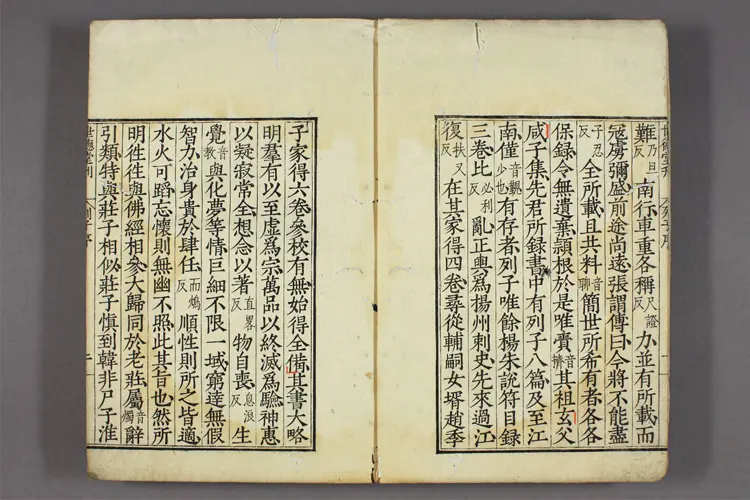 世德堂刊 列子序 一
難乃旦反南行車重各稱尺證反力並有所載而
寇虜彌盛前途尚遠張謂傅曰今將不能盡
子忍反全所載且共料音聊簡世所希有者各各
保録令無遺棄潁根於是唯賫音擠其祖玄父
咸子集先君所録書中有列子八篇及至江
南僅音覲少也有存者列子唯餘楊朱說符目録
三卷比必利反亂正輿爲揚州刺史先來過江
復扶又反在其家得四卷尋從輔嗣女壻趙季
子家得六卷參校有無始得全備其書大略
明羣有以至虛爲宗萬品以終滅爲驗神惠
以凝寂常全想念以著直略反物自喪息浪反生
覺音教與化夢等情巨細不限一域窮達無假
智力治身貴於肆任而鴆反順性則所之皆適
水火可蹈忘懷則無幽不照此其旨也然所
明往往與佛經相參大歸同於老莊屬音燭辭
引類特與莊子相似莊子慎到韓非尸子淮
世德堂刊 列子序 二